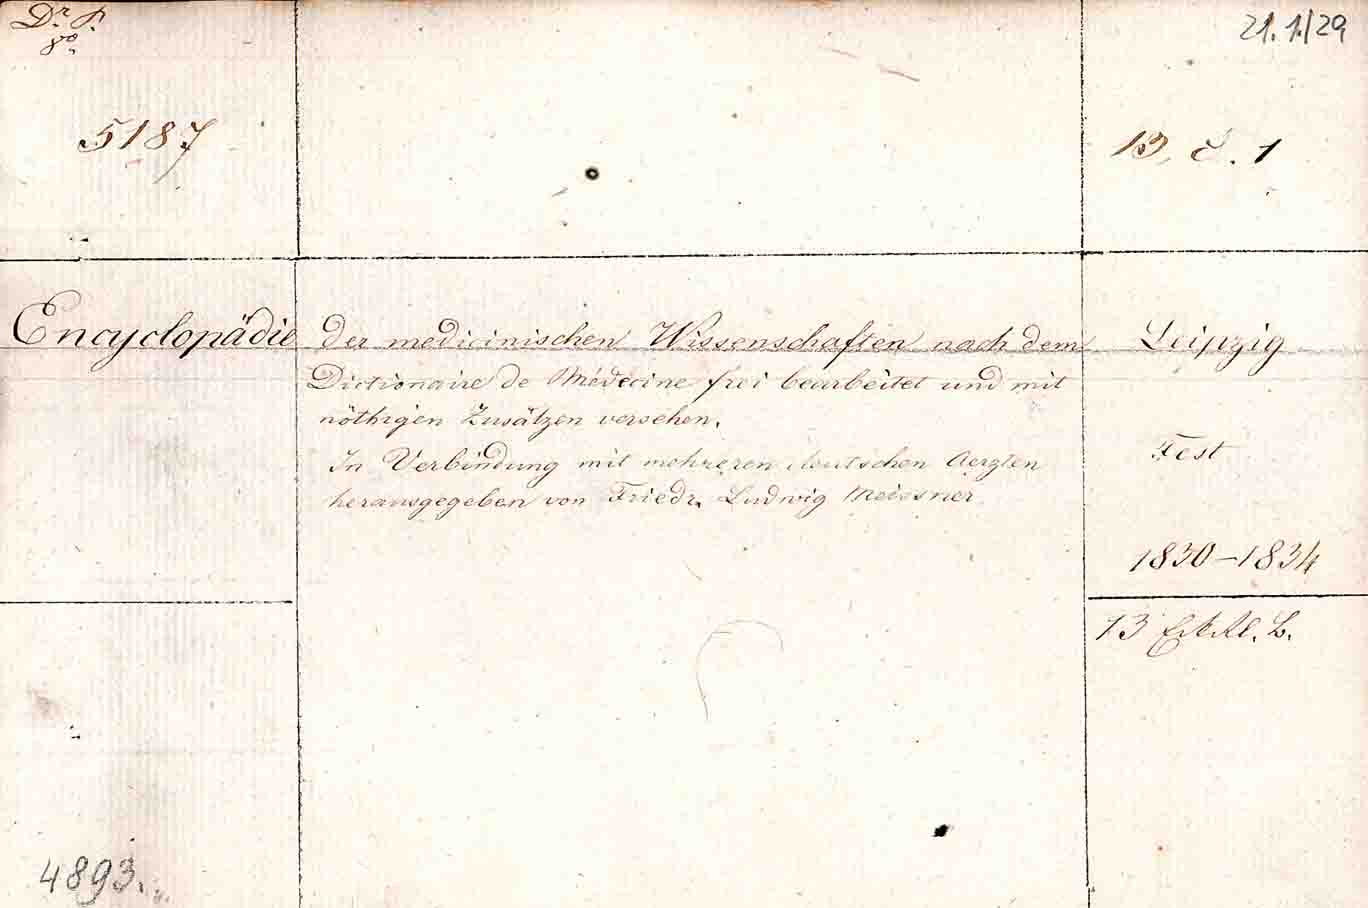 Dr. P.
8o.
21.1./29
5187
13, E. 1
Encyclopädie der medicinischen Wissenschaften nach dem
Dictionaire de Médecine frei bearbeitet und mit
nöthigen Zusätzen versehen.
In Verbindung mit mehreren deutschen Aerzten
herausgegeben von Friedr. Ludwig Meissner
Leipzig
Fest
1830–1834
13
4893.